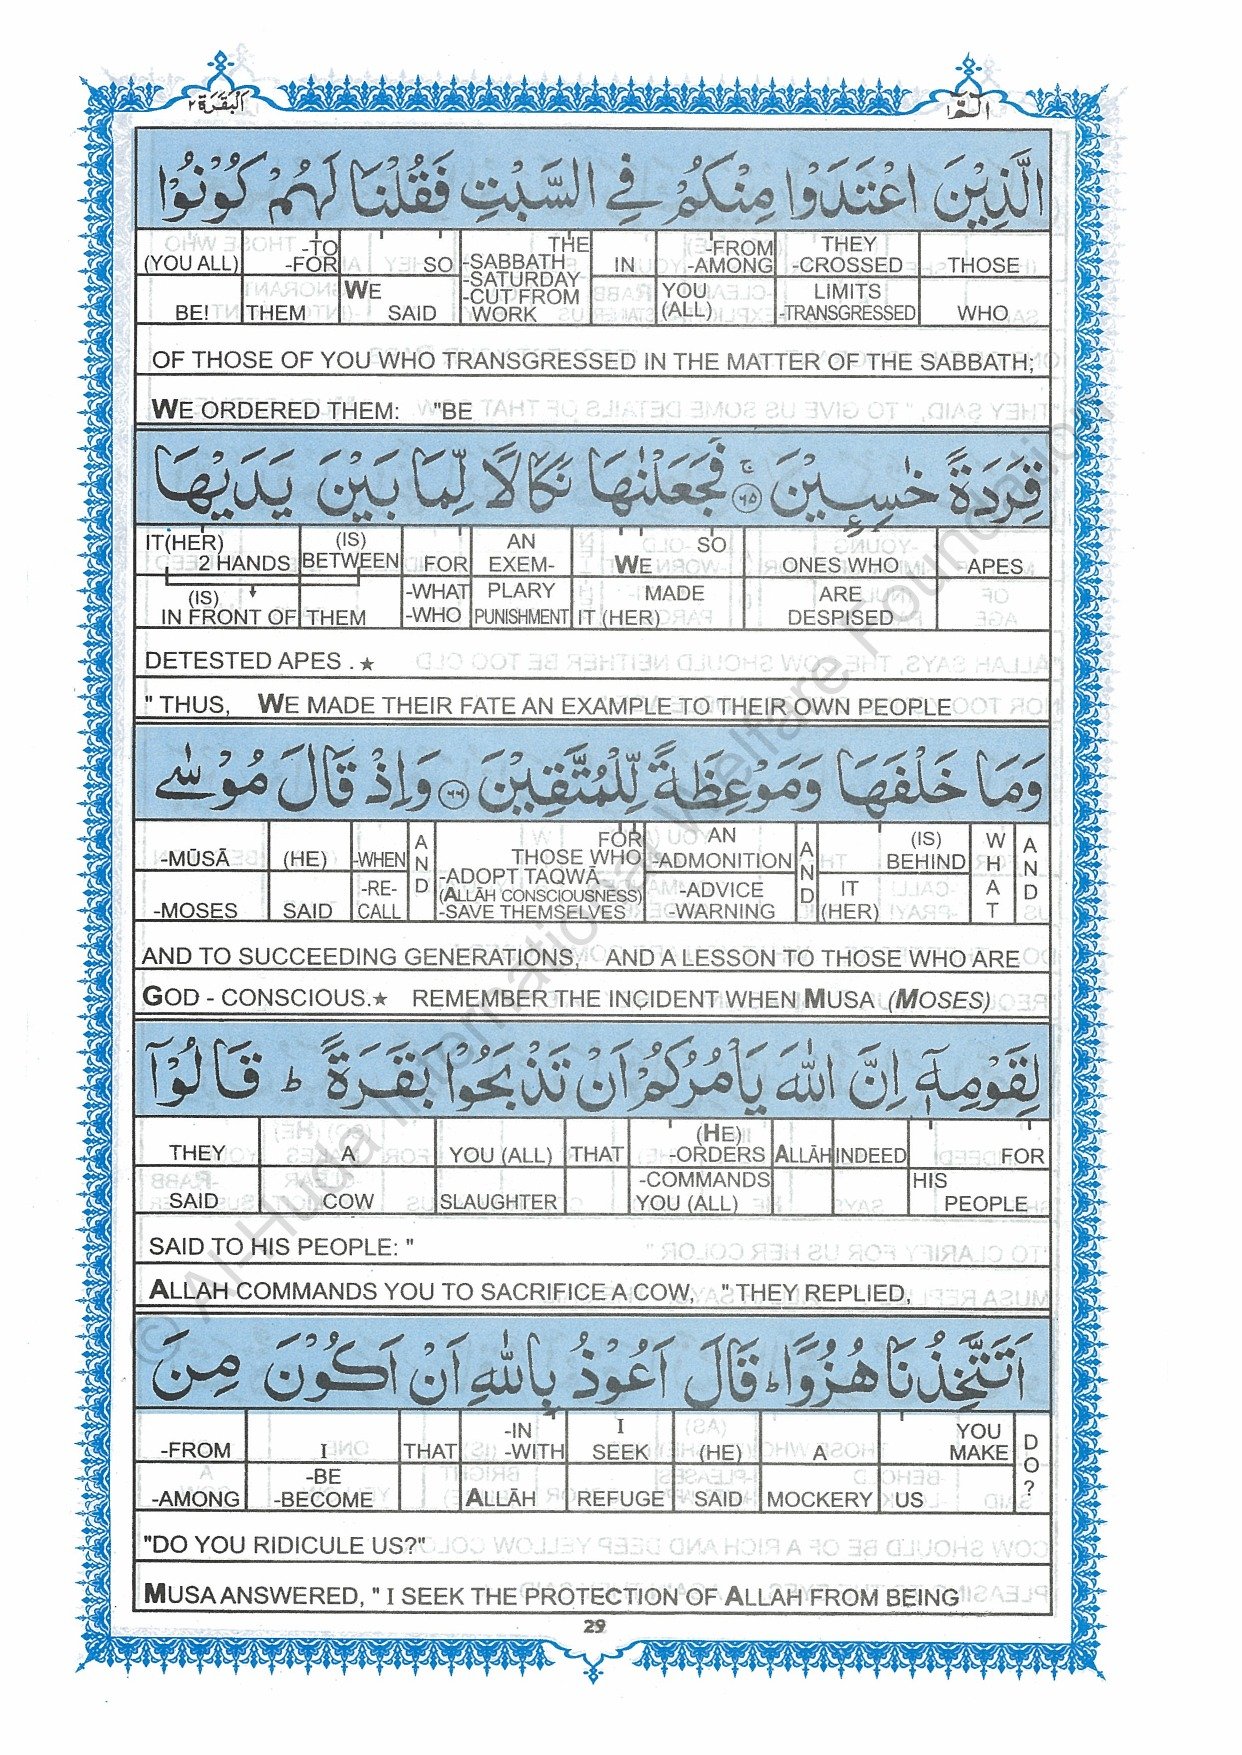 الٓمّٓ ١
اَلْبَقَرَة ٢
الَّذِيْنَ اعْتَدَوْا مِنْكُمْ فِي السَّبْتِ فَقُلْنَا لَهُمْ كُوْنُوْا
THOSE WHO
THEY -CROSSED LIMITS -TRANSGRESSED
-FROM -AMONG YOU (ALL)
IN
THE -SABBATH -SATURDAY -CUT FROM WORK
SO WE SAID
-TO -FOR THEM
(YOU ALL) BE!
OF THOSE OF YOU WHO TRANSGRESSED IN THE MATTER OF THE SABBATH;
WE ORDERED THEM: "BE
قِرَدَةً خٰسِـِٕيْنَ ۚ ٦٥ فَجَعَلْنٰهَا نَكَالًا لِّمَا بَيْنَ يَدَيْهَا
APES
ONES WHO ARE DESPISED
SO WE MADE IT (HER)
AN EXEM- PLARY PUNISHMENT
FOR -WHAT -WHO
(IS) BETWEEN
IT(HER) 2 HANDS
(IS) IN FRONT OF THEM
DETESTED APES . ★
" THUS, WE MADE THEIR FATE AN EXAMPLE TO THEIR OWN PEOPLE
وَمَا خَلْفَهَا وَمَوْعِظَةً لِّلْمُتَّقِيْنَ ٦٦ وَاِذْ قَالَ مُوْسٰى
AND
WHAT
(IS) BEHIND IT (HER)
AND
AN -ADMONITION -ADVICE -WARNING
FOR THOSE WHO -ADOPT TAQWĀ (ALLĀH CONSCIOUSNESS) -SAVE THEMSELVES
AND
-WHEN -RE- CALL
(HE) SAID
-MŪSĀ -MOSES
AND TO SUCCEEDING GENERATIONS, AND A LESSON TO THOSE WHO ARE
GOD - CONSCIOUS.★ REMEMBER THE INCIDENT WHEN MUSA (MOSES)
لِقَوْمِهٖٓ اِنَّ اللّٰهَ يَاْمُرُكُمْ اَنْ تَذْبَحُوْا بَقَرَةً ؕ قَالُوْٓا
FOR HIS PEOPLE
INDEED
ALLĀH
(HE) -ORDERS -COMMANDS YOU (ALL)
THAT
YOU (ALL) SLAUGHTER
A COW
THEY SAID
SAID TO HIS PEOPLE: "
ALLAH COMMANDS YOU TO SACRIFICE A COW, " THEY REPLIED,
اَتَتَّخِذُنَا هُزُوًا ؕ قَالَ اَعُوْذُ بِاللّٰهِ اَنْ اَكُوْنَ مِنَ
DO?
YOU MAKE US
A MOCKERY
(HE) SAID
I SEEK REFUGE
-IN -WITH ALLĀH
THAT
I -BE -BECOME
-FROM -AMONG
"DO YOU RIDICULE US?"
MUSA ANSWERED, " I SEEK THE PROTECTION OF ALLAH FROM BEING
29
© Al-Huda International Welfare Foundation